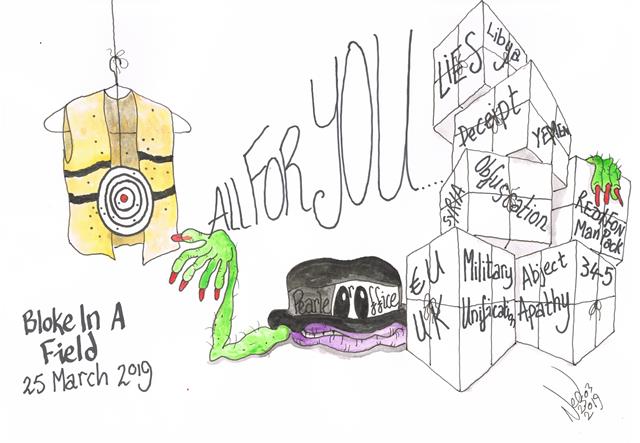 ALL FOR YOU....
LIES
Libya
Deceipt
YEMEN
SYRIA
Obfuscation
REDITION
Man Pack
EU
UK
Military
Unification
Abject
Apathy
34-5
Pearle Office
Bloke In A
Field
25 March 2019
2019